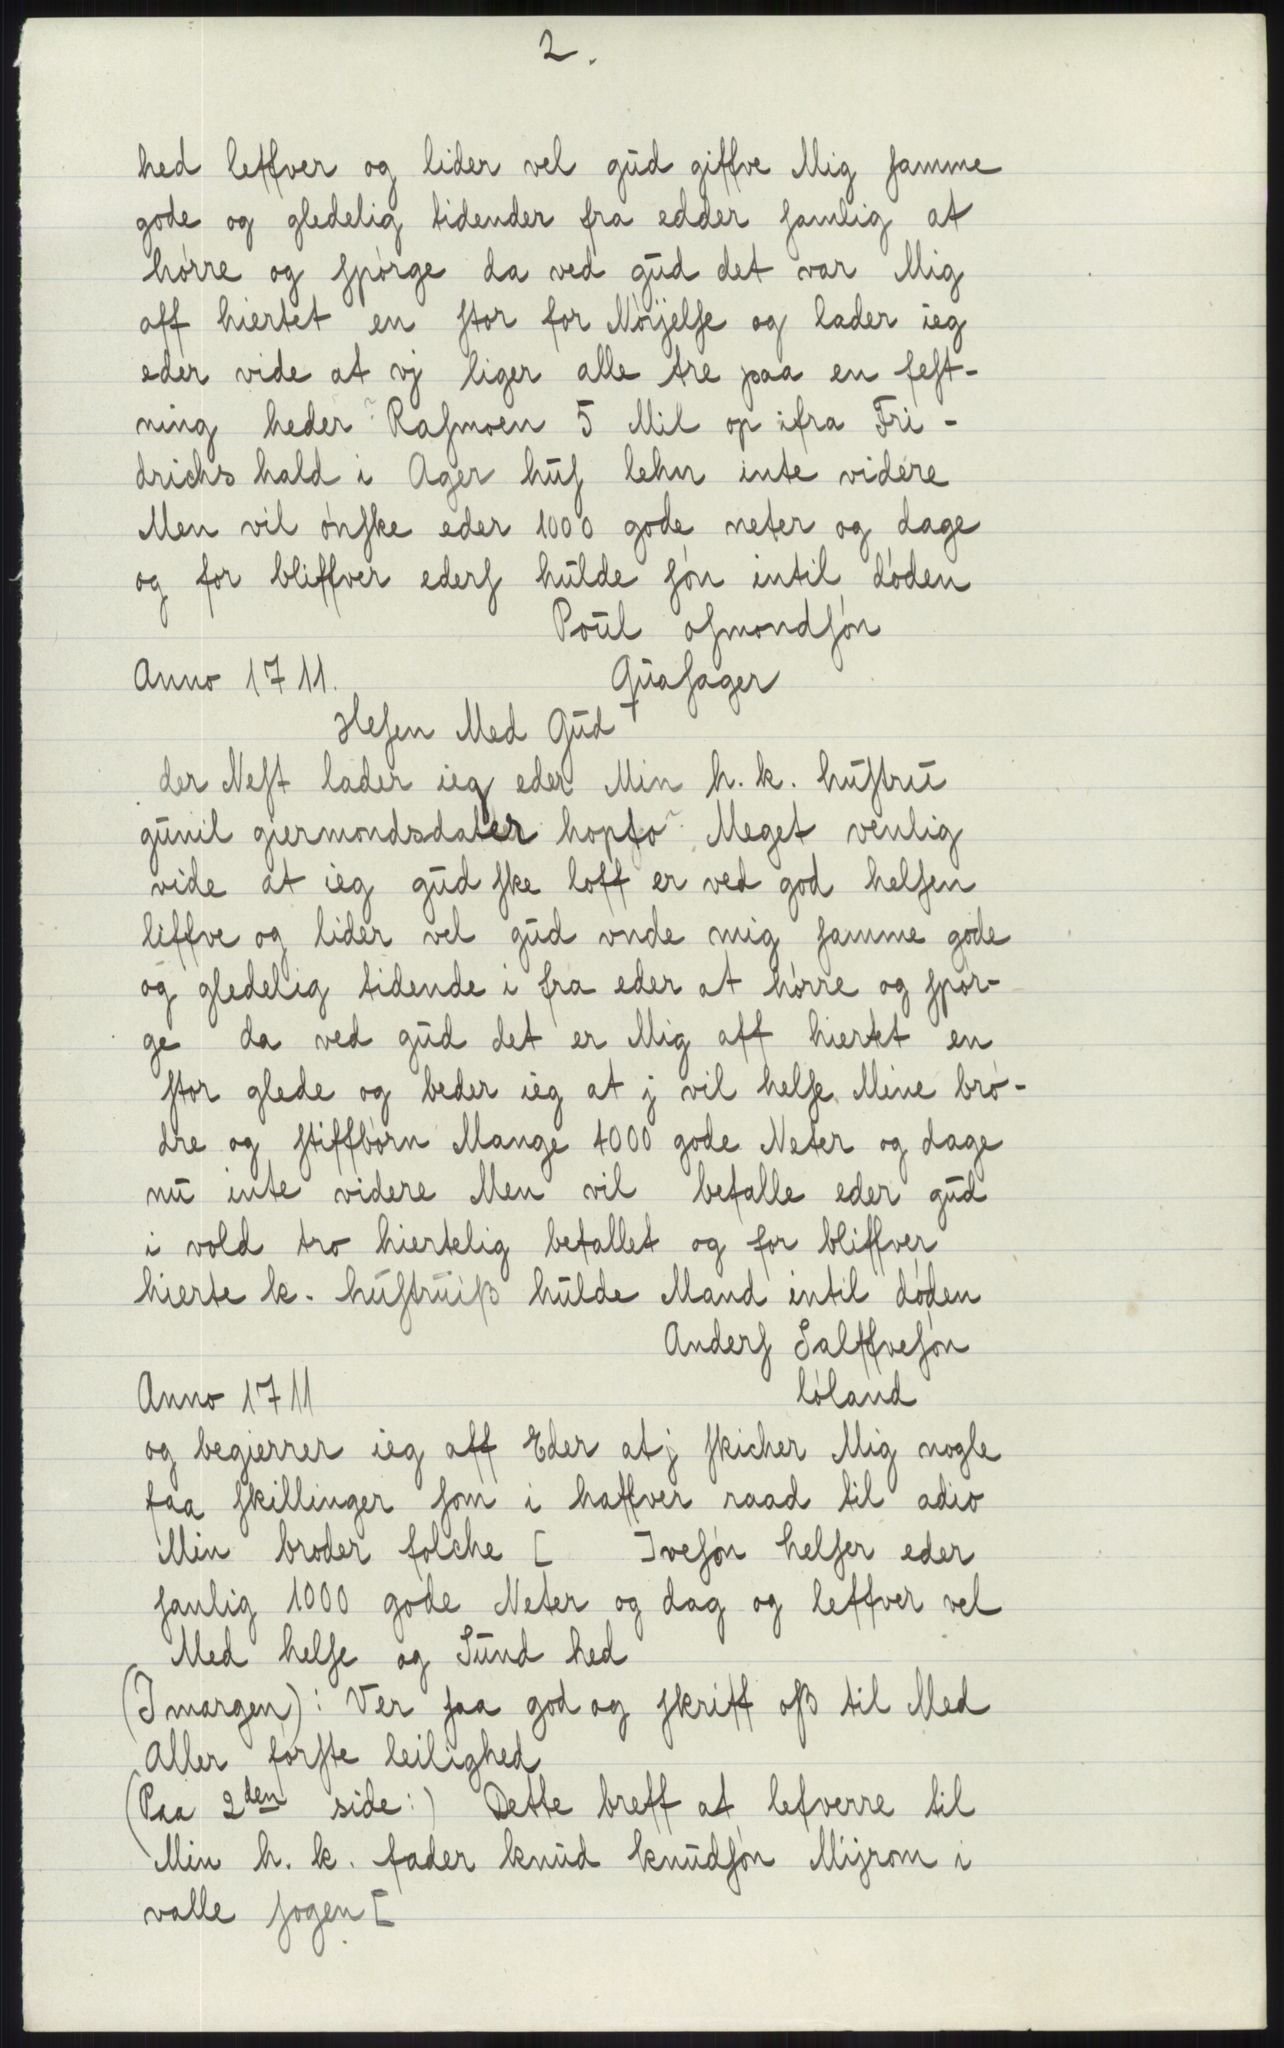 2.
hed leffver og lider vel gud giffve Mig samme
gode og gledelig tidender fra edder samlig at
hørre og spørge da ved gud det var Mig
aff hiertet en stor for Nøijelse og lader ieg
eder vide at vj liger alle tre paa en fest-
ning heder Rasmoen 5 Mil op ifra Fri-
drichs hald i Ager hus lehn inte videre
Men vil ønske eder 1000 gode neter og dage
og for bliffver eders hulde søn intil døden
Poul osmondsøn
Anno 1711. Quasager
Hesen Med Gud
der Nest lader ieg eder Min h. k. hustru
gunil giermondsdater hopto Meget venlig
vide at ieg gud ske loff er ved god helsen
liffve og lider vel gud vnde mig samme gode
og gledelig tidende i fra eder at hørre og spør-
ge da ved gud det er Mig aff hiertet en
stor glede og beder ieg at j vil helse Mine brø-
dre og stiffbørn Mange 4000 gode Neter og dage
nu inte videre Men vil befalle eder gud
i vold tro hiertelig befallet og for bliffver
hierte k. hustruiß hulde Mand intil døden
Anders Salffvesøn
Anno 1711 løland
og begierrer ieg aff Eder at j skicher Mig nogle
faa skillinger som i haffver raad til adio
Min broder folche [ ]vesøn helser eder
sanlig 1000 gode Neter og dag og leffver vel
Med helse og Sund hed
(I margen): Ver saa god og skriff oß til Med
Aller første leilighed
(Paa 2den side:) Dette breff at lefverre til
Min h. k. fader knud knudsøn Mijrom i
valle sogen [